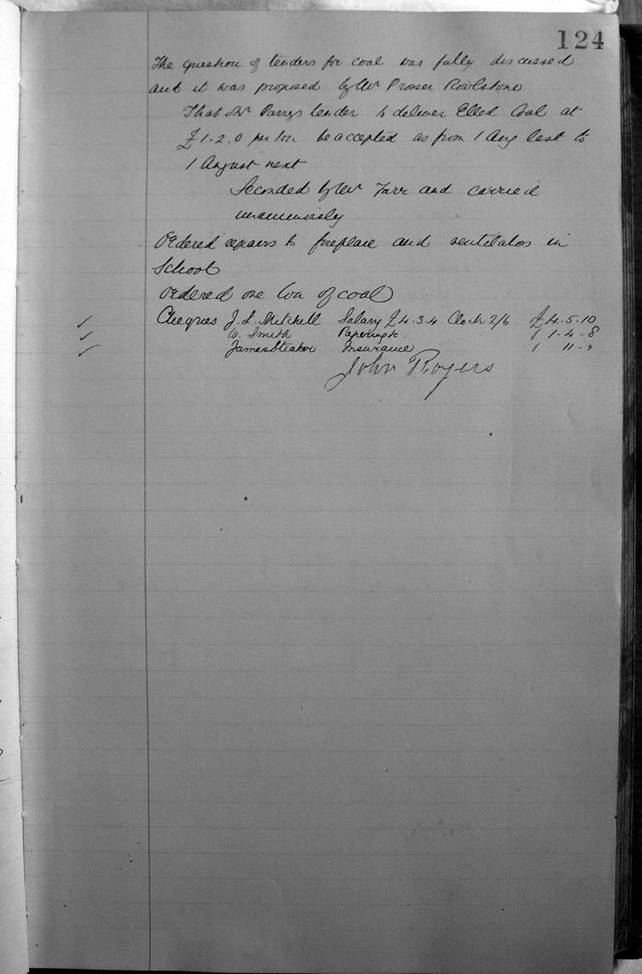 124
The question of tenders for coal was fully discussed
and it was proposed by Mr Prosser
That Mr Parrys tender to deliver Elled Coal at
£1.2.0 per ton be accepted as from 1 Aug last to
1 August next
Seconded by Mr Farr and carried
unanimously
Ordered repairs to fireplace and ventilators in
School
Ordered one ton of coal
Cheques J. L. Mitchell Salary £4.3.4 Clock 2/6 £4.5.10
W. Smith 1-4-8
James Insurance 11-
John Rogers